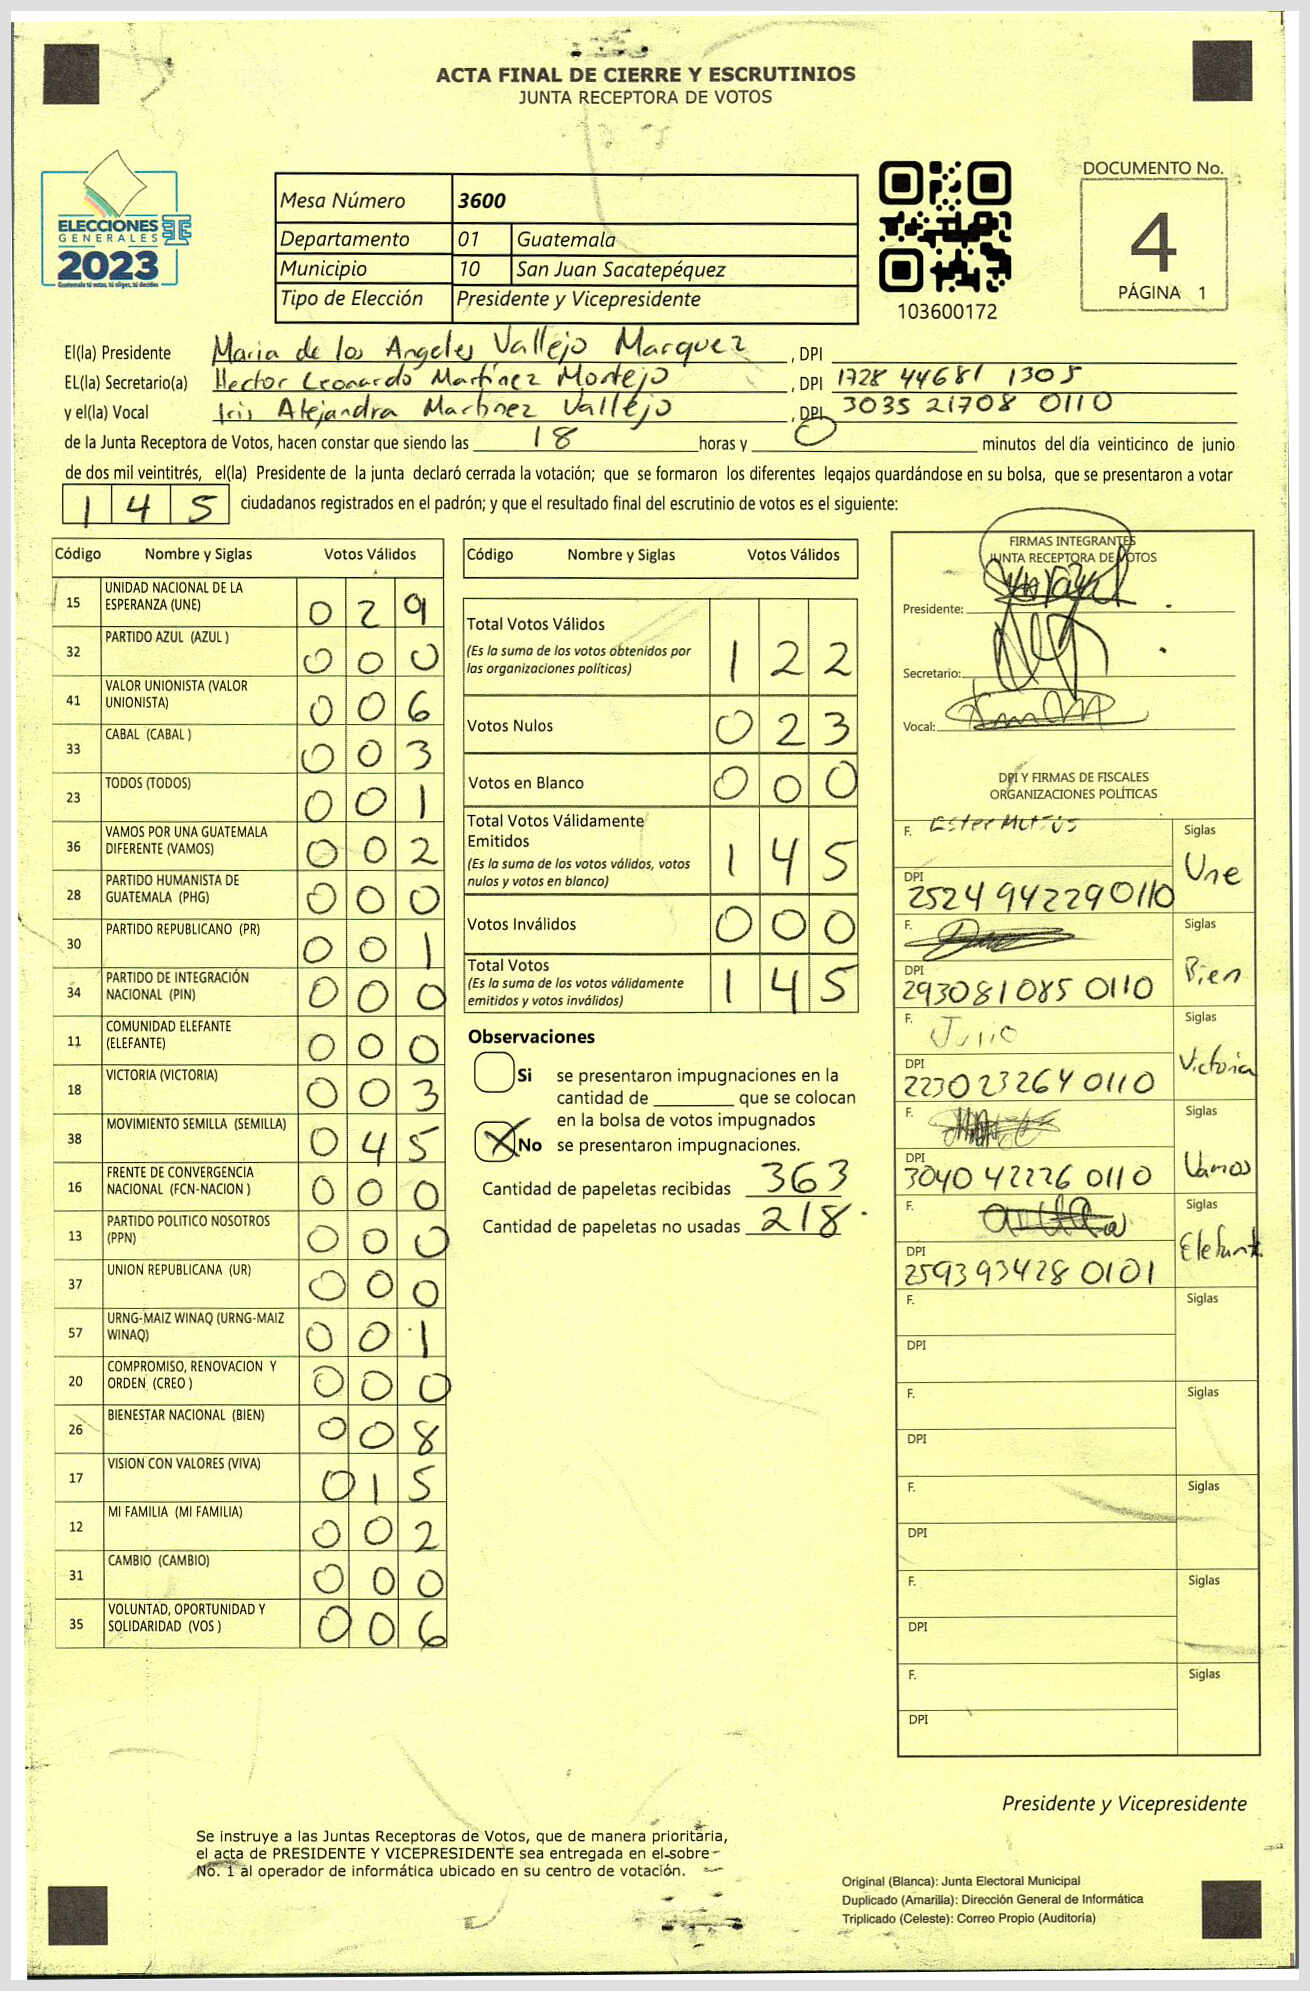 ACTA FINAL DE CIERRE Y ESCRUTINIOS
JUNTA RECEPTORA DE VOTOS
ELECCIONES
GENERALES
2023
Guatemala tú votas, tú eliges, tú decides
Mesa Número 3600
Departamento 01 Guatemala
Municipio 10 San Juan Sacatepéquez
Tipo de Elección Presidente y Vicepresidente
103600172
DOCUMENTO No.
4
PÁGINA 1
El(la) Presidente Maria de los Angeles Vallejo Marquez , DPI
EL(la) Secretario(a) Hector Leonardo Martínez Montejo , DPI 1728 44681 1305
y el(la) Vocal Iris Alejandra Martinez Vallejo , DPI 3035 21708 0110
de la Junta Receptora de Votos, hacen constar que siendo las 18 horas y 0 minutos del día veinticinco de junio
de dos mil veintitrés, el(la) Presidente de la junta declaró cerrada la votación; que se formaron los diferentes legajos guardándose en su bolsa, que se presentaron a votar
1 4 5 ciudadanos registrados en el padrón; y que el resultado final del escrutinio de votos es el siguiente:
Código Nombre y Siglas Votos Válidos
15 UNIDAD NACIONAL DE LA
ESPERANZA (UNE) 0 2 9
32 PARTIDO AZUL (AZUL ) 0 0 0
41 VALOR UNIONISTA (VALOR
UNIONISTA) 0 0 6
33 CABAL (CABAL ) 0 0 3
23 TODOS (TODOS) 0 0 1
36 VAMOS POR UNA GUATEMALA
DIFERENTE (VAMOS) 0 0 2
28 PARTIDO HUMANISTA DE
GUATEMALA (PHG) 0 0 0
30 PARTIDO REPUBLICANO (PR) 0 0 1
34 PARTIDO DE INTEGRACIÓN
NACIONAL (PIN) 0 0 0
11 COMUNIDAD ELEFANTE
(ELEFANTE) 0 0 0
18 VICTORIA (VICTORIA) 0 0 3
38 MOVIMIENTO SEMILLA (SEMILLA) 0 4 5
16 FRENTE DE CONVERGENCIA
NACIONAL (FCN-NACION ) 0 0 0
13 PARTIDO POLITICO NOSOTROS
(PPN) 0 0 0
37 UNION REPUBLICANA (UR) 0 0 0
57 URNG-MAIZ WINAQ (URNG-MAIZ
WINAQ) 0 0 1
20 COMPROMISO, RENOVACION Y
ORDEN (CREO ) 0 0 0
26 BIENESTAR NACIONAL (BIEN) 0 0 8
17 VISION CON VALORES (VIVA) 0 1 5
12 MI FAMILIA (MI FAMILIA) 0 0 2
31 CAMBIO (CAMBIO) 0 0 0
35 VOLUNTAD, OPORTUNIDAD Y
SOLIDARIDAD (VOS ) 0 0 6
Código Nombre y Siglas Votos Válidos
Total Votos Válidos 1 2 2
(Es la suma de los votos obtenidos por
las organizaciones políticas)
Votos Nulos 0 2 3
Votos en Blanco 0 0 0
Total Votos Válidamente
Emitidos 1 4 5
(Es la suma de los votos válidos, votos
nulos y votos en blanco)
Votos Inválidos 0 0 0
Total Votos 1 4 5
(Es la suma de los votos válidamente
emitidos y votos inválidos)
Observaciones
Si se presentaron impugnaciones en la
cantidad de ________ que se colocan
en la bolsa de votos impugnados
X No se presentaron impugnaciones.
Cantidad de papeletas recibidas 363
Cantidad de papeletas no usadas 218
FIRMAS INTEGRANTES
JUNTA RECEPTORA DE VOTOS
Presidente:
Secretario:
Vocal:
DPI Y FIRMAS DE FISCALES
ORGANIZACIONES POLÍTICAS
F. Siglas
Une
DPI
2524 94229 0110
F. Siglas
Bien
DPI
293081085 0110
F. Julio Siglas
Victoria
DPI
223023264 0110
F. Siglas
Vamos
DPI
3040 42226 0110
F. Siglas
Elefante
DPI
259393428 0101
F. Siglas
DPI
F. Siglas
DPI
F. Siglas
DPI
F. Siglas
DPI
F. Siglas
DPI
Presidente y Vicepresidente
Se instruye a las Juntas Receptoras de Votos, que de manera prioritaria,
el acta de PRESIDENTE Y VICEPRESIDENTE sea entregada en el sobre
No. 1 al operador de informática ubicado en su centro de votación.
Original (Blanca): Junta Electoral Municipal
Duplicado (Amarilla): Dirección General de Informática
Triplicado (Celeste): Correo Propio (Auditoría)